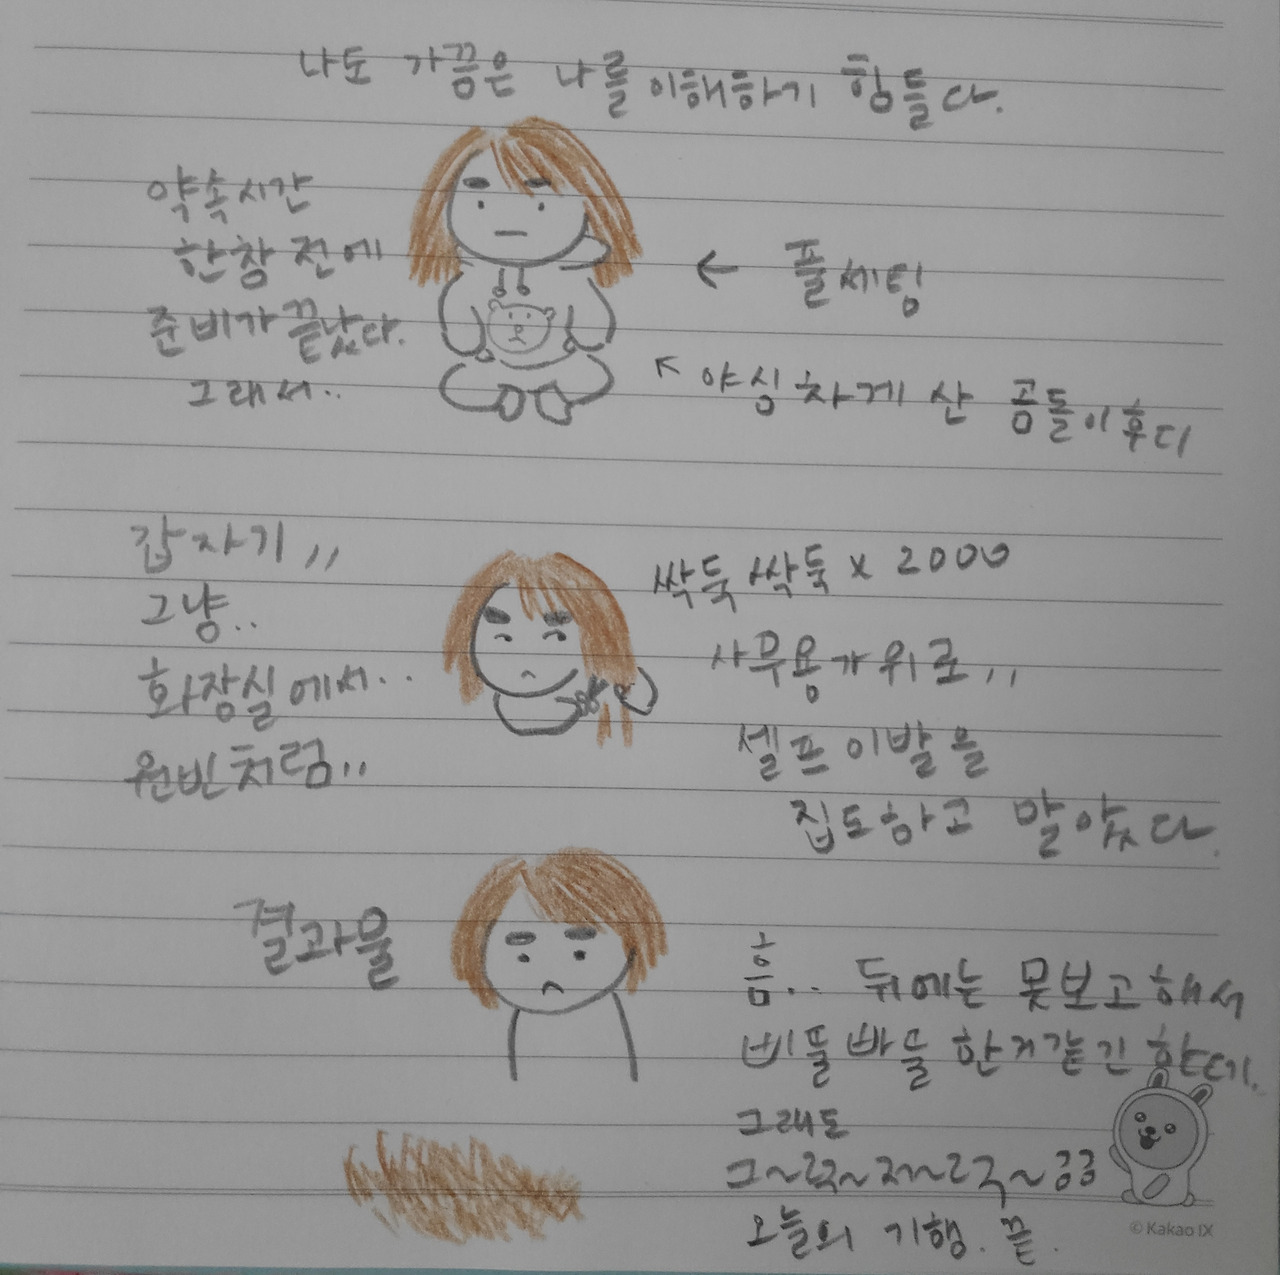 나도 가끔은 나를 이해하기 힘들다.
약속시간
한창 전에
준비가 끝났다.
그래서..
← 풀세팅
↖ 야심차게 산 곰돌이후디
갑자기,,
그냥..
화장실에서..
원빈처럼,,
싹둑싹둑 x 2000
사무용가위로,,
셀프이발을
집도하고 말았다.
결과물
흠.. 뒤에는 못보고해서
삐뚤빠뚤 한거같긴 하다.
그래도
오늘의 기행. 끝.
© Kakao IX